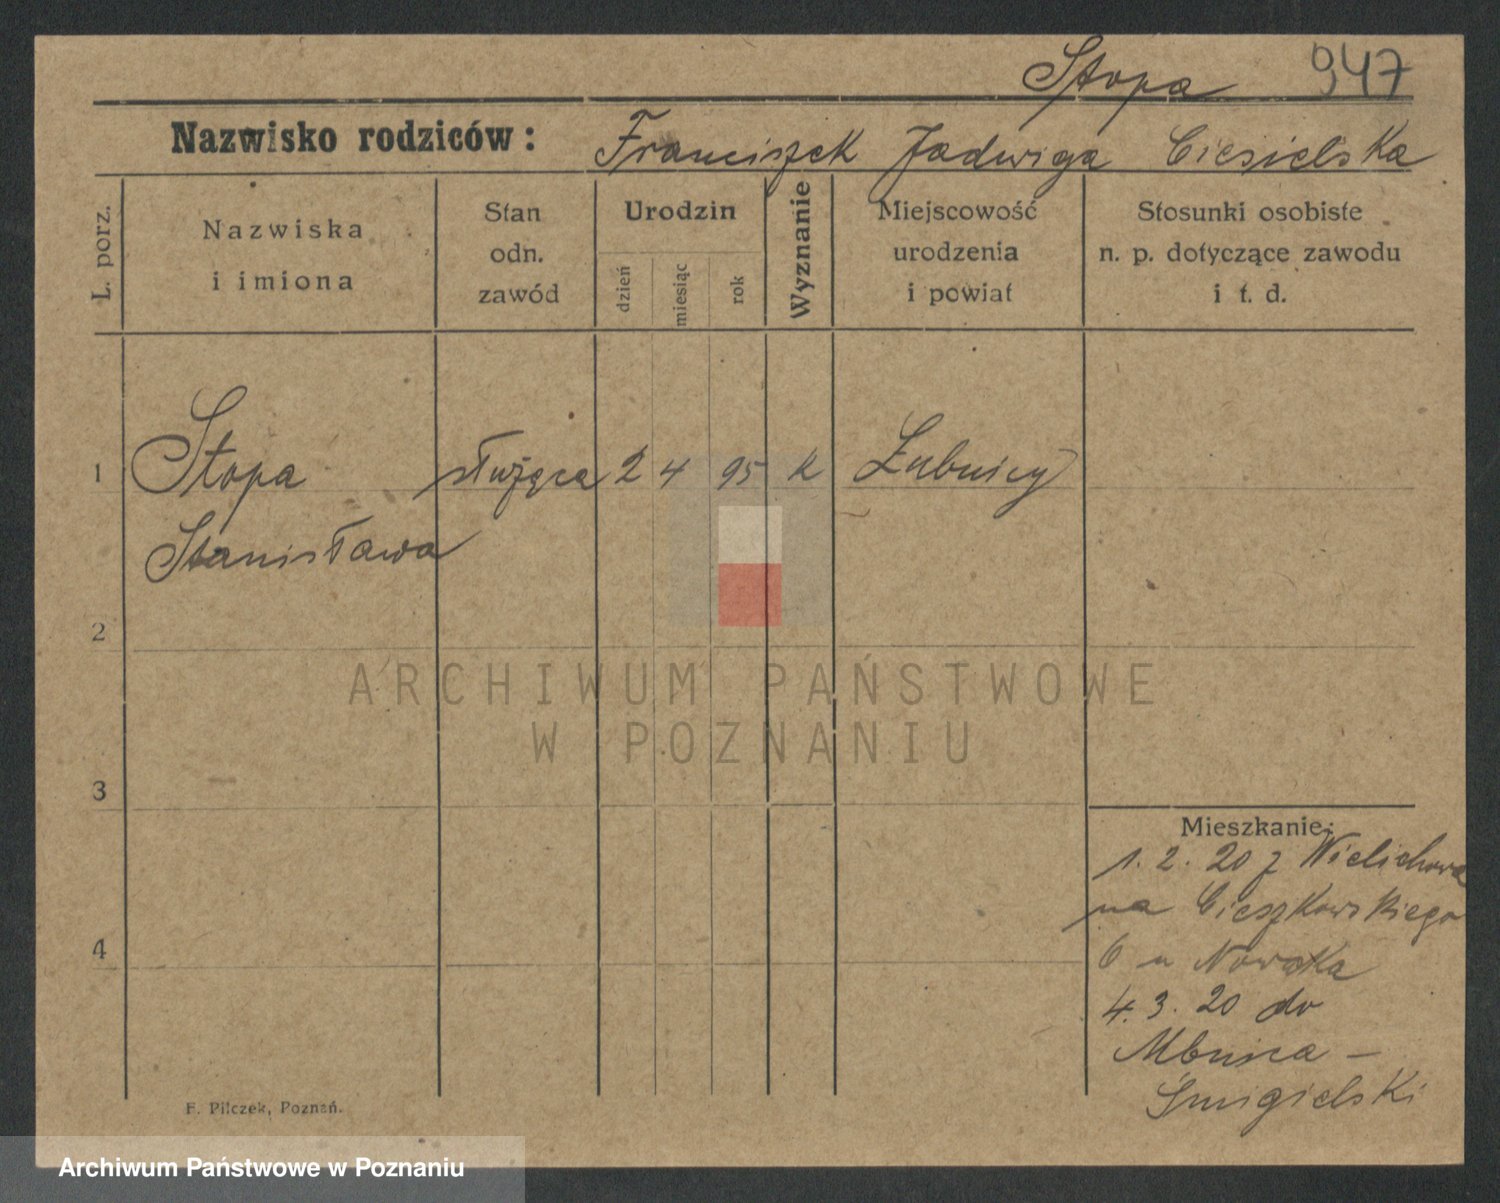 Stopa 947
Nazwisko rodziców: Franciszek Jadwiga Ciesielska
L. porz.
Nazwiska
i imiona
Stan
odn.
zawód
Urodzin
dzień
miesiąc
rok
Wyznanie
Miejscowość
urodzenia
i powiat
Stosunki osobiste
n. p. dotyczące zawodu
i t. d.
1 Stopa służąca 2 4 95 k Łubnicy
Stanisława
2
3
4
Mieszkanie:
1. 2. 20 z Wielichowa
na Cieszkowskiego
6 u Nowaka
4. 3. 20 do
Śmigielski
F. Pilczek, Poznań.
ARCHIWUM PAŃSTWOWE
W POZNANIU
Archiwum Państwowe w Poznaniu